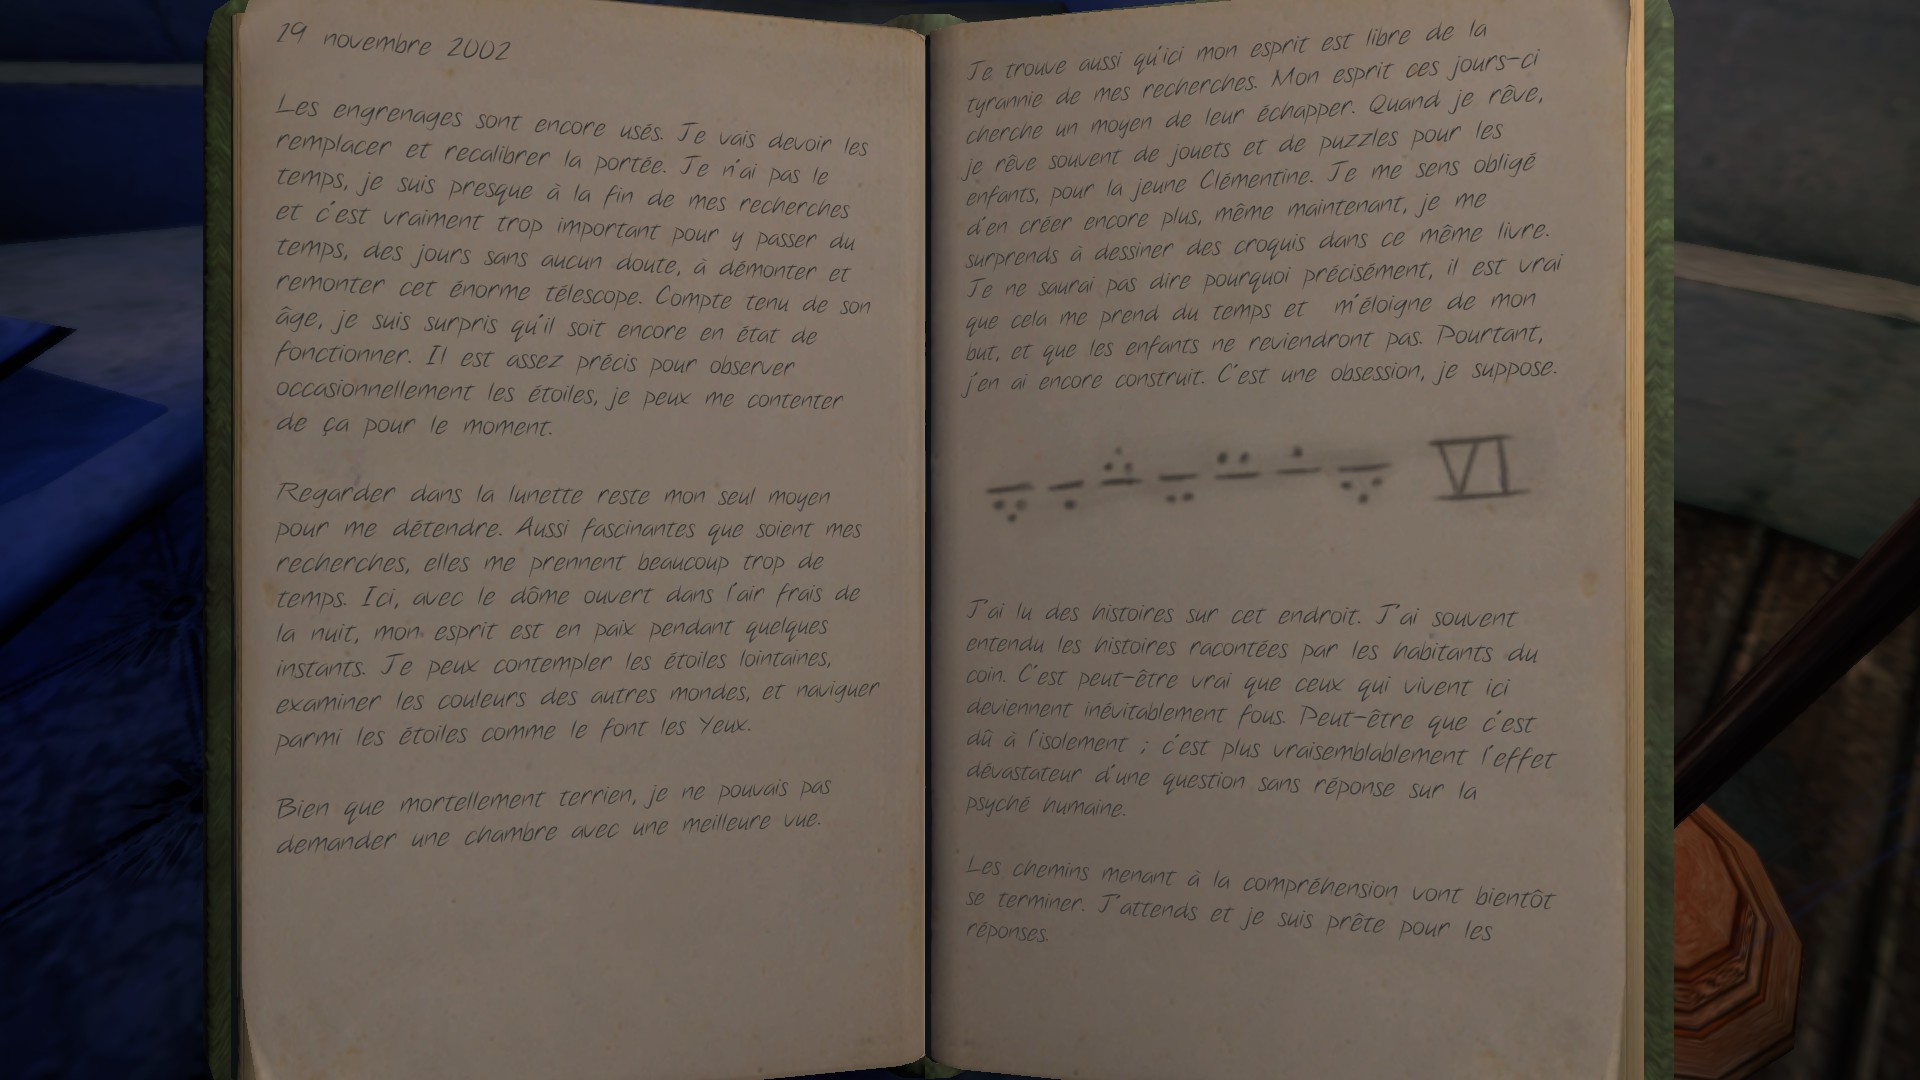 19 novembre 2002
Les engrenages sont encore usés. Je vais devoir les
remplacer et recalibrer la portée. Je n'ai pas le
temps, je suis presque à la fin de mes recherches
et c'est vraiment trop important pour y passer du
temps, des jours sans aucun doute, à démonter et
remonter cet énorme télescope. Compte tenu de son
âge, je suis surpris qu'il soit encore en état de
fonctionner. Il est assez précis pour observer
occasionnellement les étoiles, je peux me contenter
de ça pour le moment.
Regarder dans la lunette reste mon seul moyen
pour me détendre. Aussi fascinantes que soient mes
recherches, elles me prennent beaucoup trop de
temps. Ici, avec le dôme ouvert dans l'air frais de
la nuit, mon esprit est en paix pendant quelques
instants. Je peux contempler les étoiles lointaines,
examiner les couleurs des autres mondes, et naviguer
parmi les étoiles comme le font les Yeux.
Bien que mortellement terrien, je ne pouvais pas
demander une chambre avec une meilleure vue.
Je trouve aussi qu'ici mon esprit est libre de la
tyrannie de mes recherches. Mon esprit ces jours-ci
cherche un moyen de leur échapper. Quand je rêve,
je rêve souvent de jouets et de puzzles pour les
enfants, pour la jeune Clémentine. Je me sens obligé
d'en créer encore plus, même maintenant, je me
surprends à dessiner des croquis dans ce même livre.
Je ne saurai pas dire pourquoi précisément, il est vrai
que cela me prend du temps et m'éloigne de mon
but, et que les enfants ne reviendront pas. Pourtant,
j'en ai encore construit. C'est une obsession, je suppose.
VI
J'ai lu des histoires sur cet endroit. J'ai souvent
entendu les histoires racontées par les habitants du
coin. C'est peut-être vrai que ceux qui vivent ici
deviennent inévitablement fous. Peut-être que c'est
dû à l'isolement ; c'est plus vraisemblablement l'effet
dévastateur d'une question sans réponse sur la
psyché humaine.
Les chemins menant à la compréhension vont bientôt
se terminer. J'attends et je suis prête pour les
réponses.